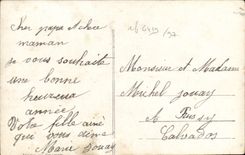 Cher papa et chère
maman
je vous souhaite
une bonne
heureuse
année
Votre fille ainé
que vous aime
Marie Jouay
Monsieur et Madame
Michel Jouay
à Bussy
Calvados